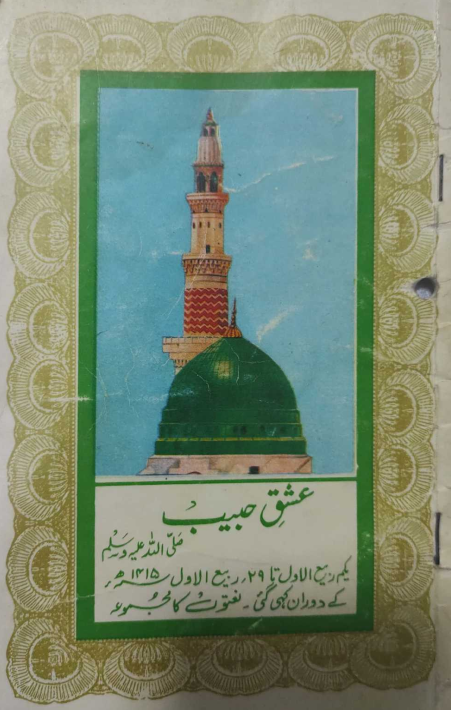 عشقِ حبیب
صلّی اللہ علیہ وسلم
یکم ربیع الاول تا ۲۹؍ ربیع الاول ۱۴۱۵ھ
کے دوران کہی گئی۔ نعتوں کا مجموعہ